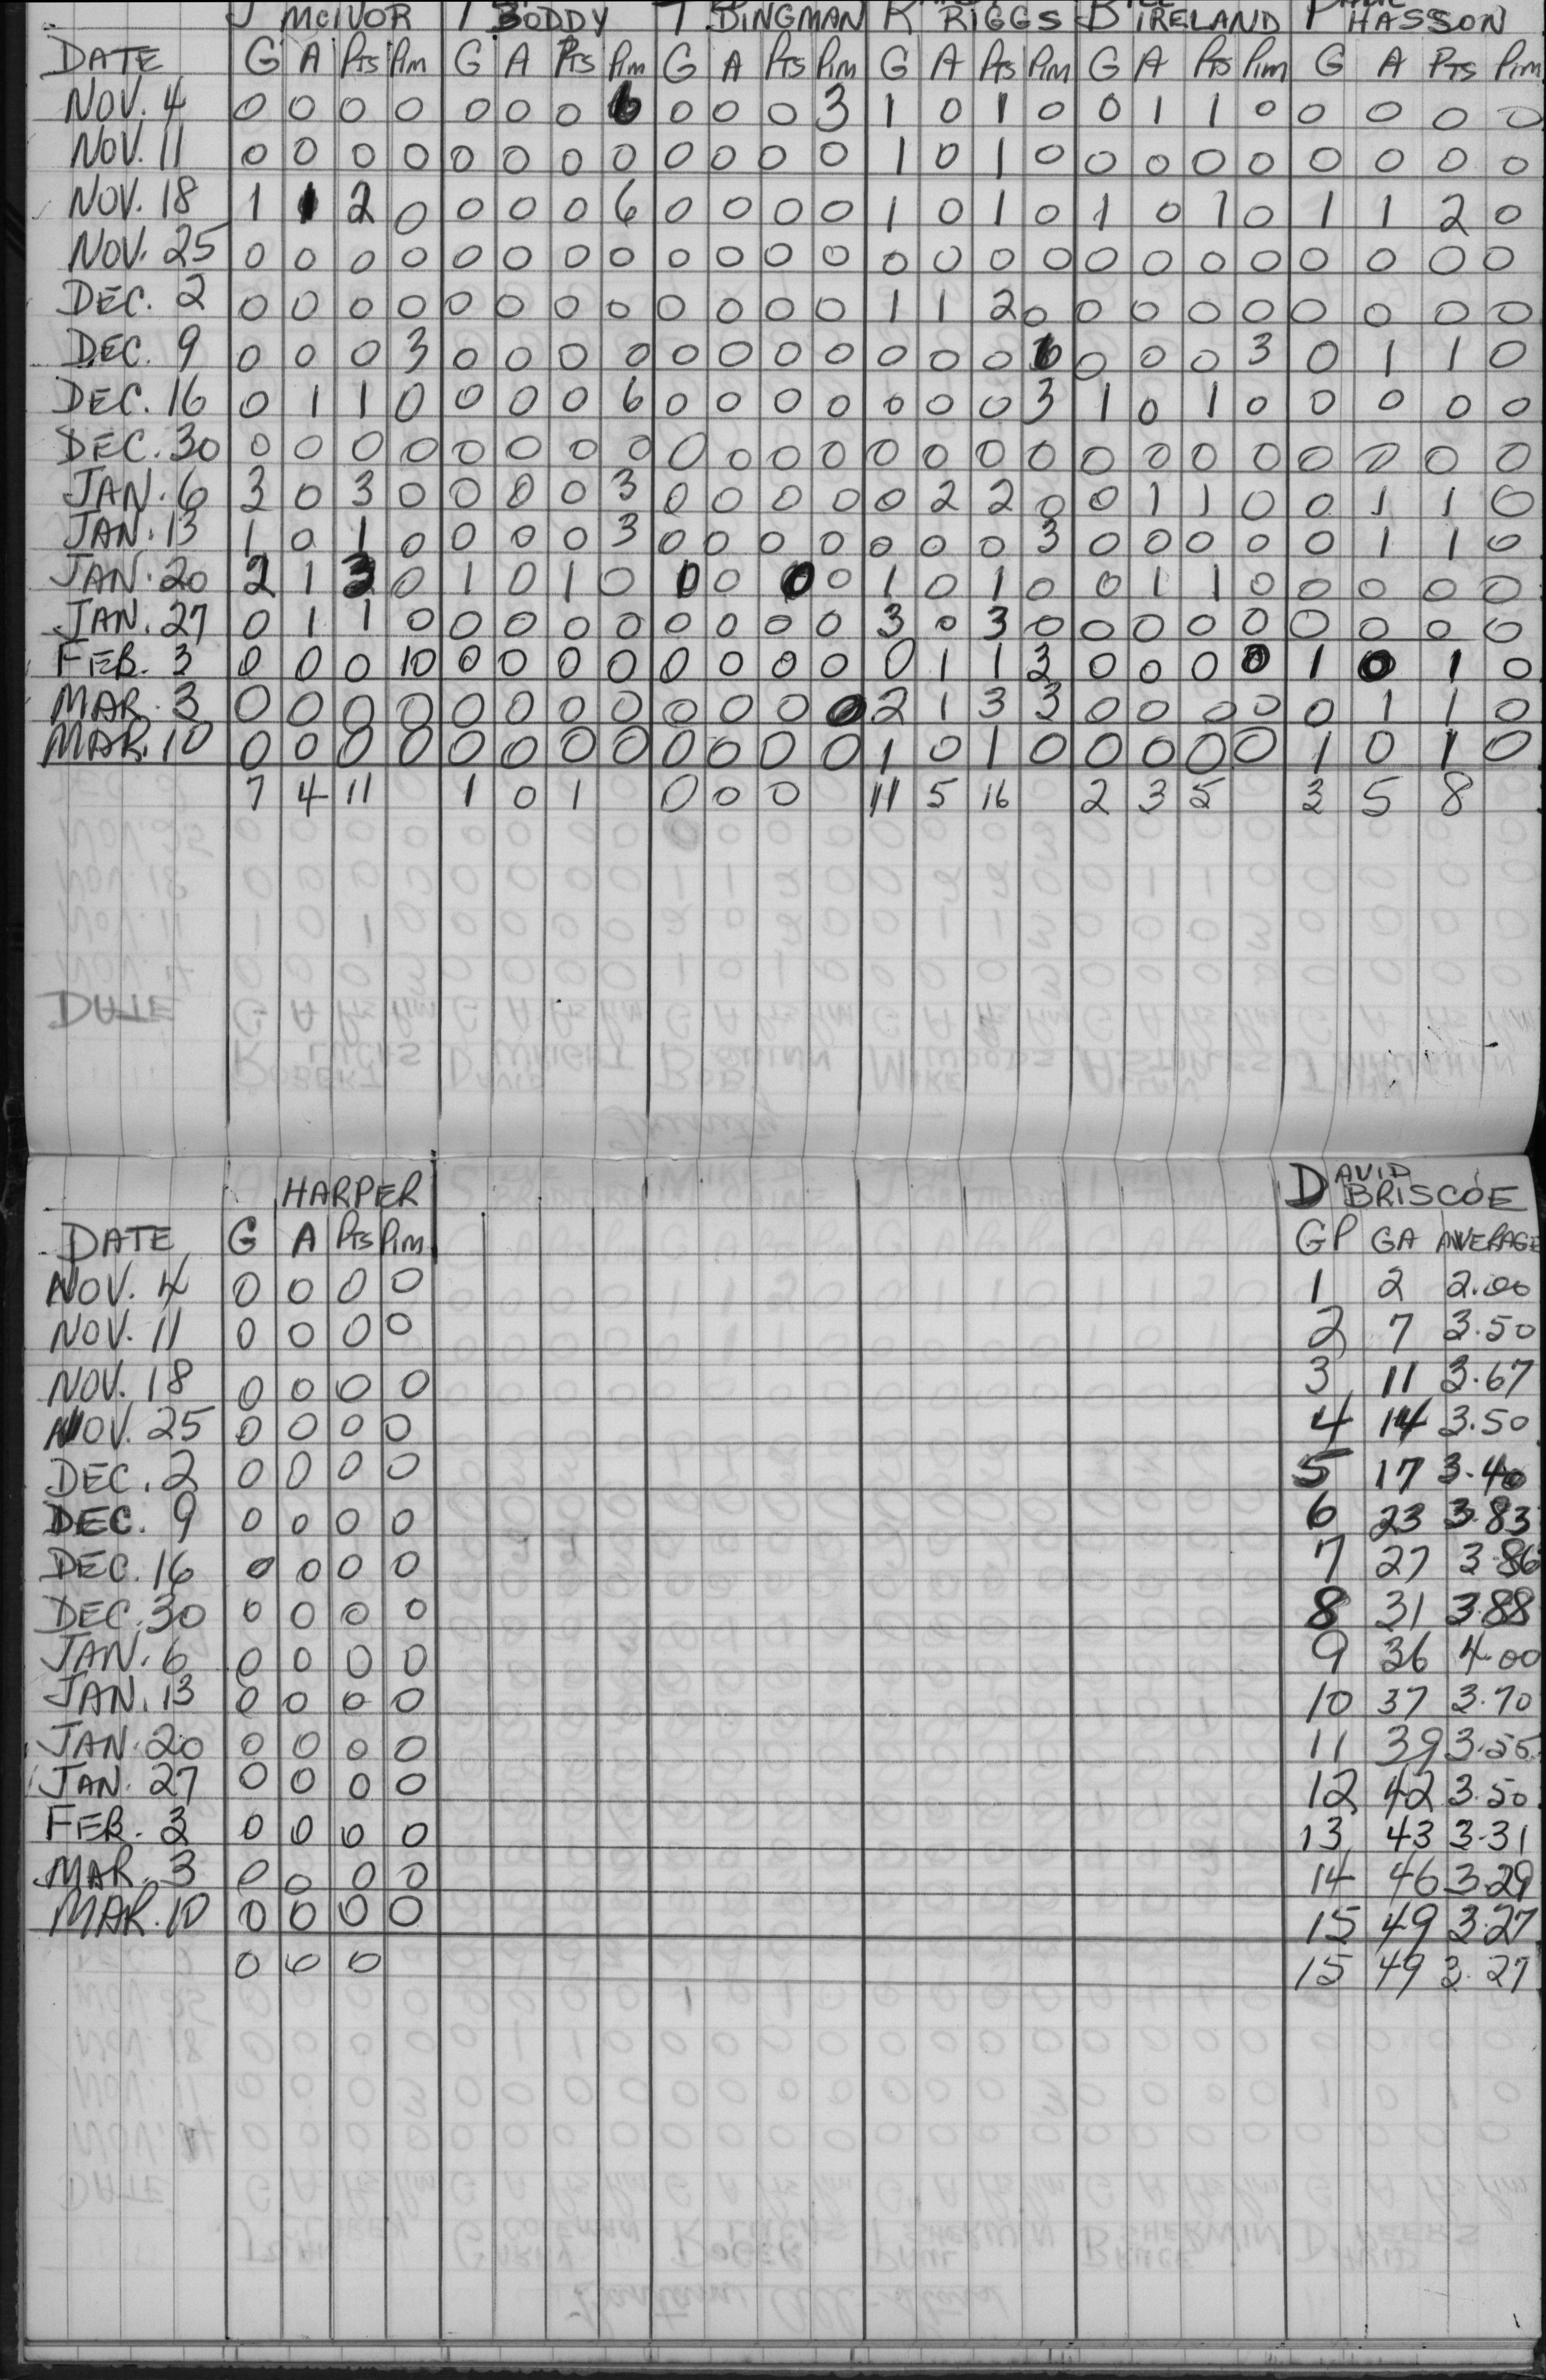 J McIVOR T BODDY T BINGMAN R RIGGS B IRELAND P HASSON
DATE G A Pts Pim G A Pts Pim G A Pts Pim G A Pts Pim G A Pts Pim G A Pts Pim
NOV. 4 0 0 0 0 0 0 0 6 0 0 0 3 1 0 1 0 0 1 1 0 0 0 0 0
NOV. 11 0 0 0 0 0 0 0 0 0 0 0 0 1 0 1 0 0 0 0 0 0 0 0 0
NOV. 18 1 1 2 0 0 0 0 6 0 0 0 0 1 0 1 0 1 0 1 0 1 1 2 0
NOV. 25 0 0 0 0 0 0 0 0 0 0 0 0 0 0 0 0 0 0 0 0 0 0 0 0
DEC. 2 0 0 0 0 0 0 0 0 0 0 0 0 1 1 2 0 0 0 0 0 0 0 0 0
DEC. 9 0 0 0 3 0 0 0 0 0 0 0 0 0 0 0 6 0 0 0 3 0 1 1 0
DEC. 16 0 1 1 0 0 0 0 6 0 0 0 0 0 0 0 3 1 0 1 0 0 0 0 0
DEC. 30 0 0 0 0 0 0 0 0 0 0 0 0 0 0 0 0 0 0 0 0 0 0 0 0
JAN. 6 3 0 3 0 0 0 0 3 0 0 0 0 0 2 2 0 0 1 1 0 0 1 1 0
JAN. 13 1 0 1 0 0 0 0 3 0 0 0 0 0 0 0 3 0 0 0 0 0 1 1 0
JAN. 20 2 1 3 0 1 0 1 0 0 0 0 0 1 0 1 0 0 1 1 0 0 0 0 0
JAN. 27 0 1 1 0 0 0 0 0 0 0 0 0 3 0 3 0 0 0 0 0 0 0 0 0
FEB. 3 0 0 0 10 0 0 0 0 0 0 0 0 0 1 1 3 0 0 0 0 1 0 1 0
MAR. 3 0 0 0 0 0 0 0 0 0 0 0 0 2 1 3 3 0 0 0 0 0 1 1 0
MAR. 10 0 0 0 0 0 0 0 0 0 0 0 0 1 0 1 0 0 0 0 0 1 0 1 0
7 4 11 1 0 1 0 0 0 11 5 16 2 3 5 3 5 8
HARPER DAVID BRISCOE
DATE G A Pts Pim GP GA AVERAGE
NOV. 4 0 0 0 0 1 2 2.00
NOV. 11 0 0 0 0 2 7 3.50
NOV. 18 0 0 0 0 3 11 3.67
NOV. 25 0 0 0 0 4 14 3.50
DEC. 2 0 0 0 0 5 17 3.40
DEC. 9 0 0 0 0 6 23 3.83
DEC. 16 0 0 0 0 7 27 3.86
DEC. 30 0 0 0 0 8 31 3.88
JAN. 6 0 0 0 0 9 36 4.00
JAN. 13 0 0 0 0 10 37 3.70
JAN. 20 0 0 0 0 11 39 3.55
JAN. 27 0 0 0 0 12 42 3.50
FEB. 3 0 0 0 0 13 43 3.31
MAR. 3 0 0 0 0 14 46 3.29
MAR. 10 0 0 0 0 15 49 3.27
0 0 0 15 49 3.27